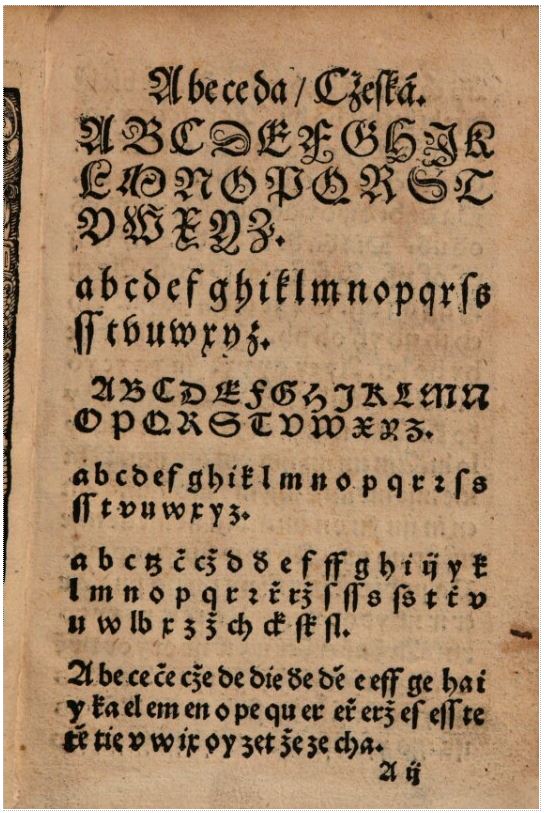 Abeceda / Cžeská.
A B C D E F G H J K
L M N O P Q R S T
V W X Y Z.
a b c d e f g h i k l m n o p q r ſ s
ſſ t v u w x y ż.
A B C D E F G H J K L M N
O P Q R S T V W X Y Z.
a b c d e f g h i k l m n o p q r ꝛ ſ s
ſſ t v u w x y z.
a b c tz č cž d ď e f ff g h i ij y k
l m n o p q r ꝛ ř rž ſ ſſ s ſs t ť v
u w lb x z ž ch ck ſk ſl.
A be ce če cže de die ďe dě e eff ge ha i
y ka el em en o pe qu er eř erž eſ eſſ te
tě tie v w ix oy zet že ze cha.
A ij